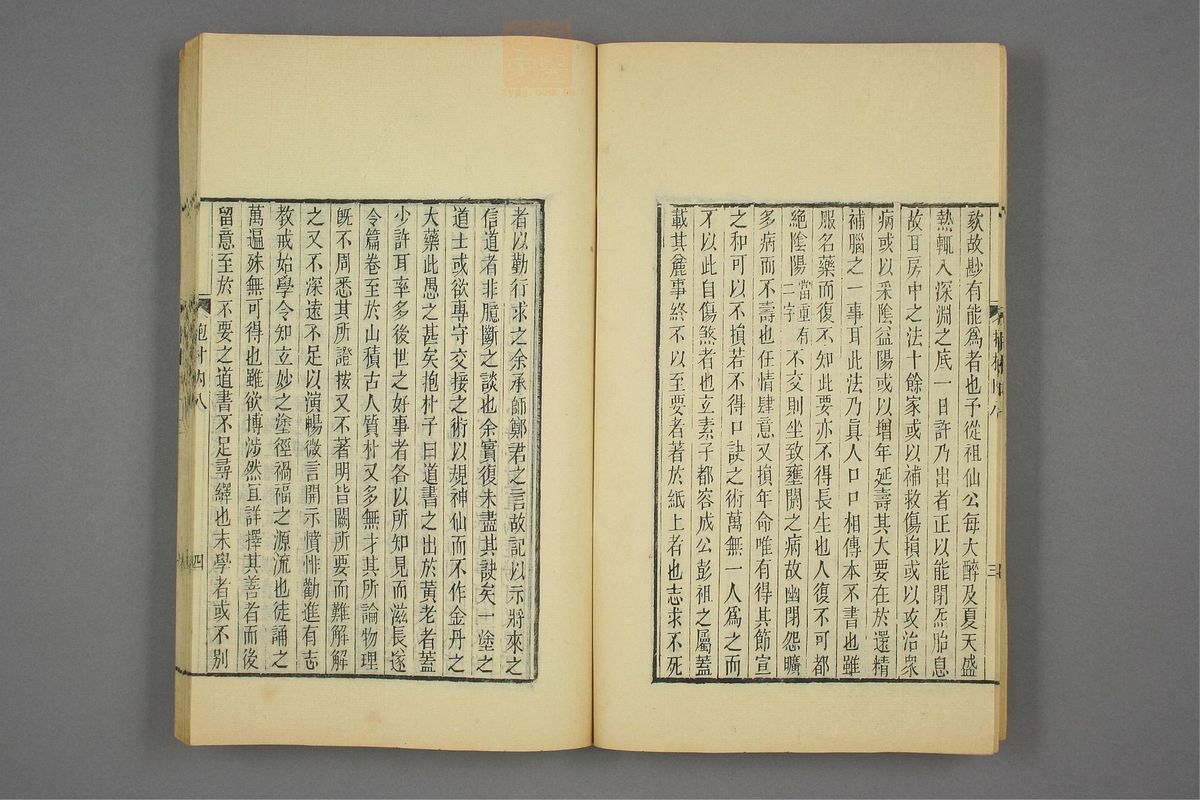 欵故尠有能爲者也予從祖仙公每大醉及夏天盛
熱輒入深淵之底一日許乃出者正以能閉炁胎息
故耳房中之法十餘家或以補救傷損或以攻治衆
病或以采陰益陽或以增年延壽其大要在於還精
補腦之一事耳此法乃眞人口口相傳本不書也雖
服名藥而復不知此要亦不得長生也人復不可都
絕陰陽二字當重有不交則坐致壅閼之病故幽閉怨曠
多病而不壽也任情肆意又損年命唯有得其節宣
之和可以不損若不得口訣之術萬無一人爲之而
不以此自傷煞者也立素子都容成公彭祖之屬蓋
載其麄事終不以至要者著於紙上者也志求不死
三
者以勤行求之余承師鄭君之言故記以示將來之
信道者非臆斷之談也余實復未盡其訣矣一塗之
道士或欲專守交接之術以規神仙而不作金丹之
大藥此愚之甚矣抱朴子曰道書之出於黃老者蓋
少許耳率多後世之好事者各以所知見而滋長遂
令篇卷至於山積古人質朴又多無才其所論物理
旣不周悉其所證按又不著明皆闕所要而難解解
之又不深遠不足以演暢微言開示憤悱勸進有志
教戒始學令知立妙之塗徑禍福之源流也徒誦之
萬遍殊無可得也雖欲博涉然宜詳擇其善者而後
留意至於不要之道書不足尋繹也末學者或不別
抱朴內八
四